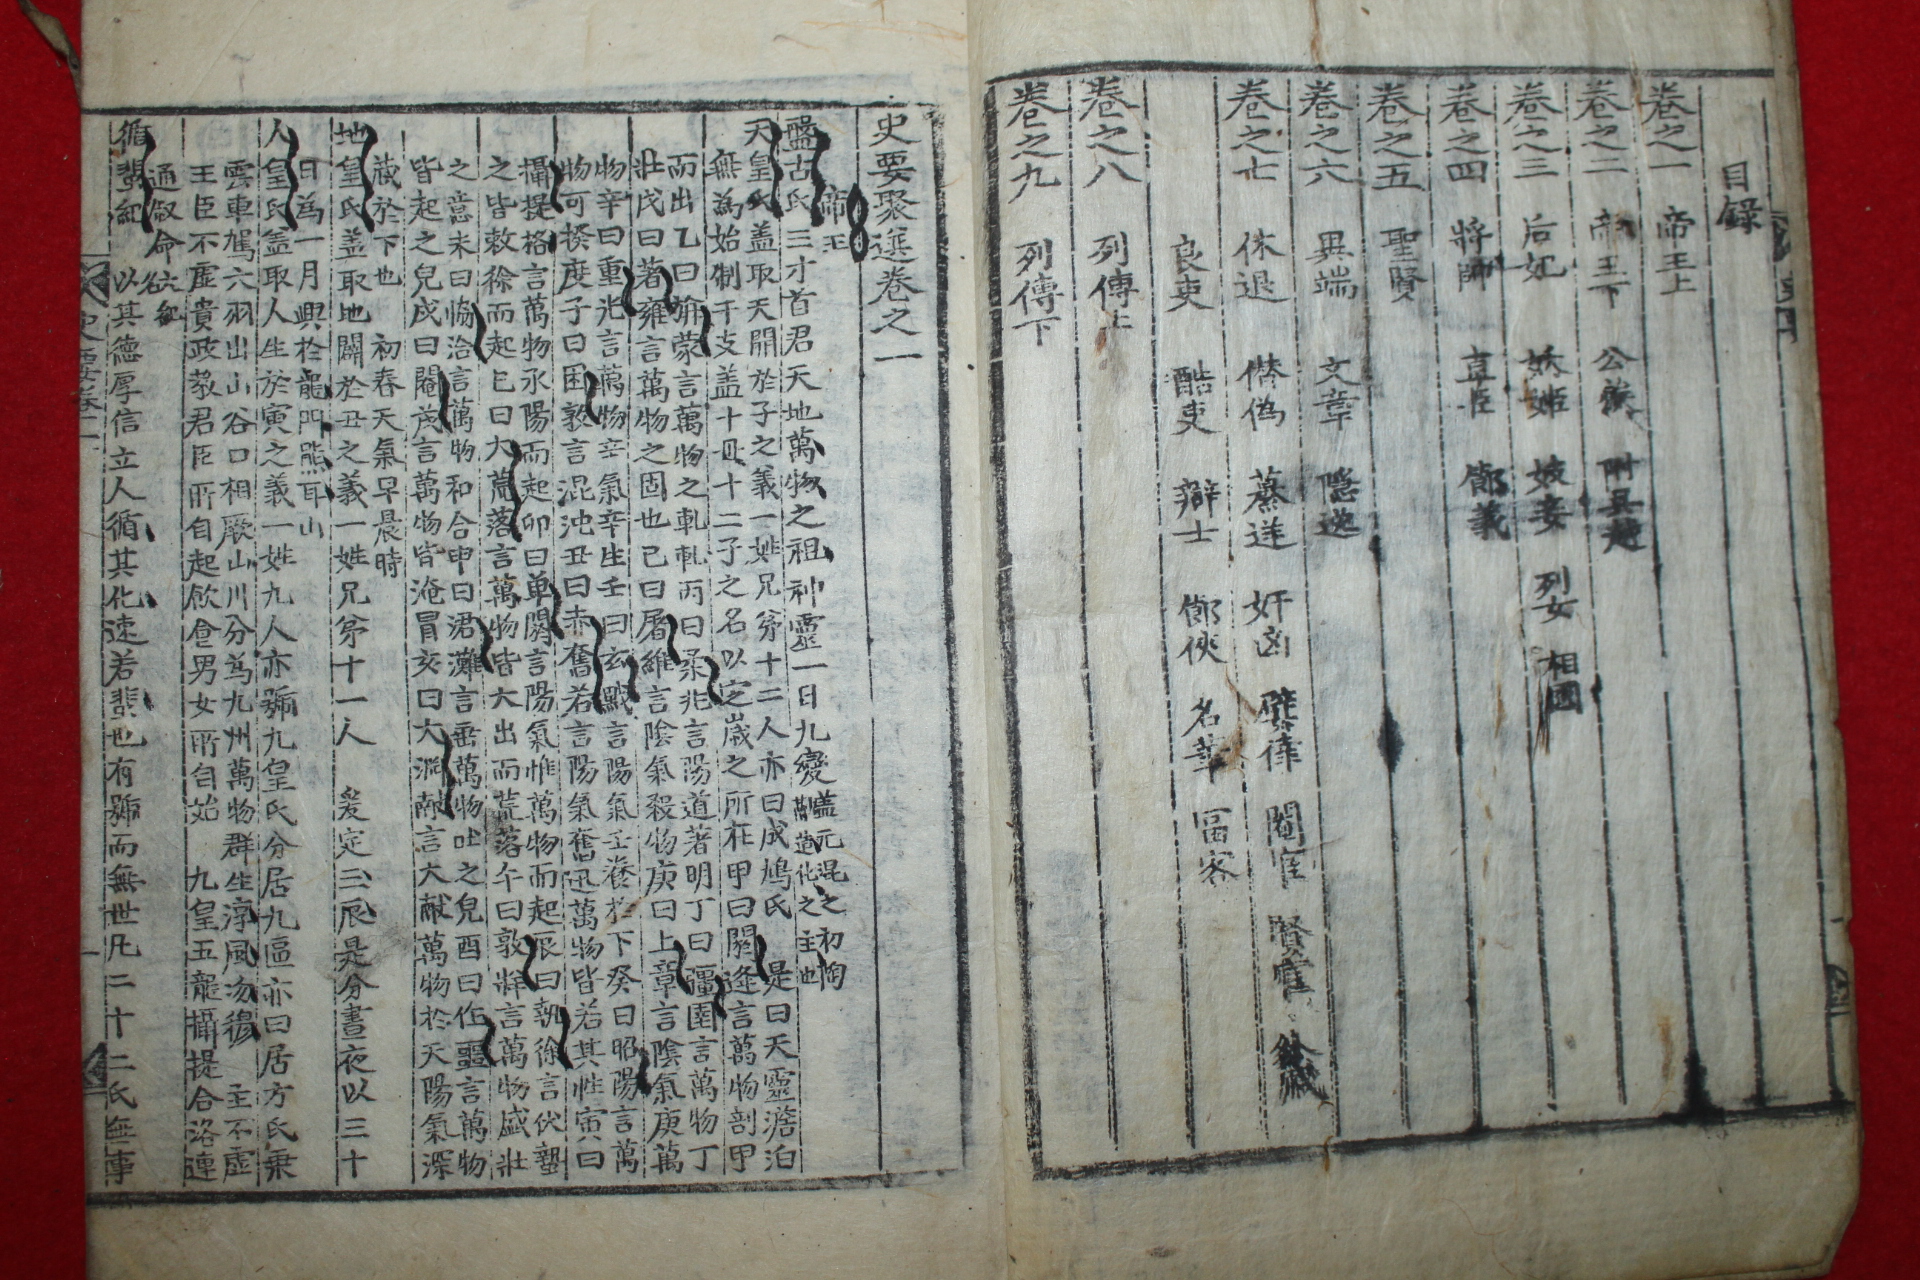 目錄
卷之一 帝王上
卷之二 帝王下 公族 附吴越
卷之三 后妃 妖姬 妓妾 列女 相國
卷之四 將帥 直臣 節義
卷之五 聖賢
卷之六 異端 文章 隱逸
卷之七 休退 僣偽 簒逆 奸凶 嬖倖 閹宦 賢宦
良吏 酷吏 辯士 節俠 名筆 富客
卷之八 列傳上
卷之九 列傳下
史要聚選卷之一
帝王
盤古氏 三才首君天地萬物之祖神靈一日九變 蓋元混之初陶
造化之主也
天皇氏 蓋取天開於子之義一姓兄弟十二人亦曰成鳩氏 是曰天靈澹泊
無為始制干支盖十母十二子之名以定歲之所在甲曰閼逢言萬物剖甲
而出乙曰旃蒙言萬物之軋軋丙曰柔兆言陽道著明丁曰彊圉言萬物丁
壯戊曰著雍言萬物之固也己曰屠維言陰氣殺物庚曰上章言陰氣庚萬
物辛曰重光言萬物辛氣辛生壬曰玄黓言陽氣壬養於下癸曰昭陽言萬
物可揆度子曰困敦言混沌丑曰赤奮若言陽氣奮迅萬物皆若其性寅曰
攝提格言萬物承陽而起卯曰單閼言陽氣惟萬物而起辰曰執徐言伏蟄
之皆敕徐而起巳曰大荒落言萬物皆大出而荒落午曰敦牂言萬物盛壯
之意未曰協洽言萬物和合申曰涒灘言垂萬物吐之皃酉曰作噩言萬物
皆起之皃戌曰閹茂言萬物皆淹冒亥曰大淵献言大献萬物於天陽氣深
藏於下也 初春天氣早晨時
地皇氏 盖取地闢於丑之義一姓兄弟十一人 爰定三辰是分晝夜以三十
日為一月興於龍門熊耳山
人皇氏 盖取人生於寅之義一姓九人亦號九皇氏分居九區亦曰居方氏乗
雲車駕六羽出山谷口相厥山川分為九州萬物群生淳風沕穆 主不虚
王臣不虚貴政教君臣所自起飲食男女所自始 九皇五龍攝提合洛連
通叙命六紀名
循蜚紀 以其德厚信立人循其化速若蜚也有號而無世凡二十二氏無事